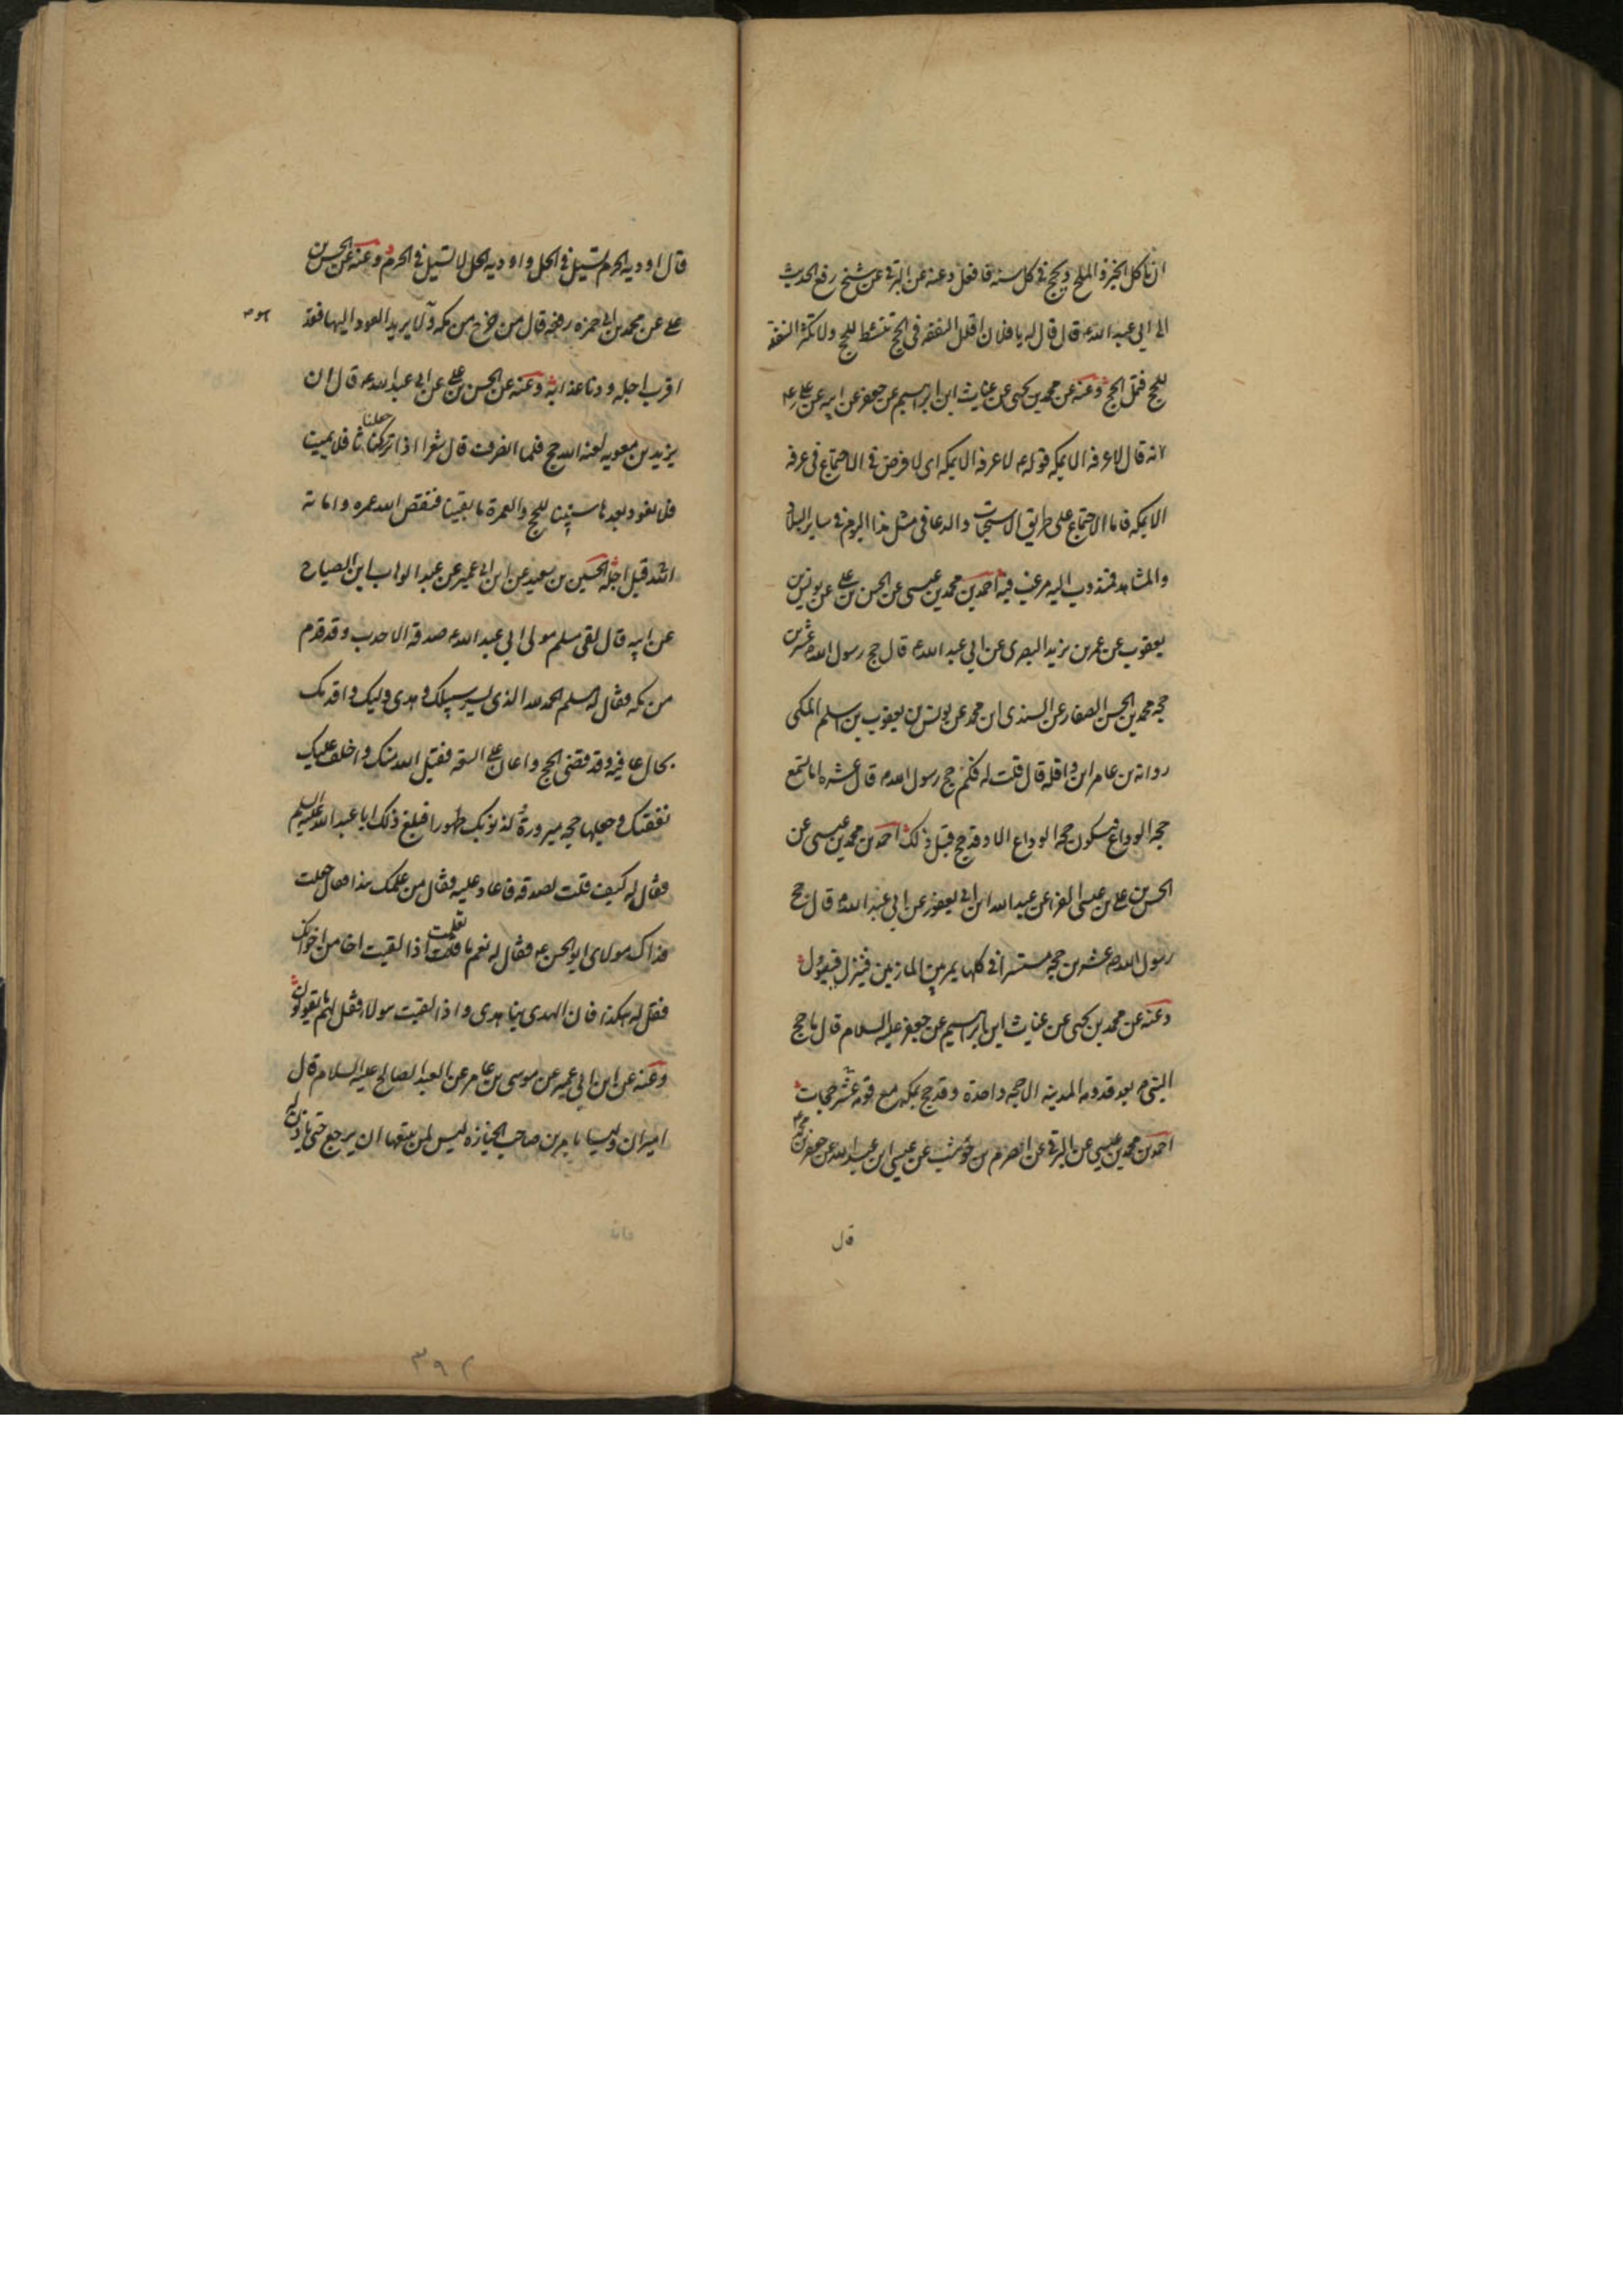 ان تاكل الخبز والملح وتحج فى كل سنه فافعل وعنه عن البرقى عن شيخ رفع الحديث
الى ابى عبد الله ع قال قال له يا فلان اقلل النفقه فى الحج تنشط للحج ولا تكثر النفقه
للحج فتمل الحج وعنه عن محمد بن يحيى عن غياث ابن ابراهيم عن جعفر عن ابيه عن على ع
انه قال لا عرفه الا بمكه قوله ع لا عرفه الا بمكه اى لا فرض فى الاجتماع فى عرفه
الا بمكه فاما الاجتماع على طريق الاستحباب والدعا فى مثل هذا اليوم فى ساير البلاد
والمشاهد فمندوب اليه مرغب فيه احمد بن محمد بن عيسى عن الحسن بن على عن يونس بن
يعقوب عن عمر بن يزيد البصرى عن ابى عبد الله ع قال حج رسول الله ص عشرين
حجه محمد بن الحسن الصفار عن السندى ابن محمد عن يونس بن يعقوب بن اسلم المكى
روايه بن عامر ابن واقله قال قلت له فكم حج رسول الله ص قال عشره اما تسمع
حجه الوداع فيكون حجه الوداع الا وقد حج قبل ذلك احمد بن محمد بن عيسى عن
الحسن بن على بن عيسى الفرا عن عبد الله ابن ابى يعفور عن ابى عبد الله ع قال حج
رسول الله ص عشرين حجه مستسرا فى كلها يمر بين المازمين فينزل فيبول
وعنه عن محمد بن يحيى عن غياث ابن ابراهيم عن جعفر عليه السلام قال ما حج
النبى ص بعد قدومه المدينه الا حجه واحدة وقد حج بمكه مع قومه حجات
احمد بن محمد بن عيسى عن البرقى عن اصرم بن حوشب عن عيسى ابن عبد الله عن جعفر بن محمد ع
قال
قال اوديه الحرم تسيل فى الحل واوديه الحل لا تسيل فى الحرم وعنه عن الحسن بن
على عن محمد بن ابى حمزه رفعه قال من خرج من مكه ولا يريد العود اليها فقد
اقرب اجله ودنا عذابه وعنه عن الحسن بن على عن ابى عبد الله ع قال ان
يزيد بن معويه لعنه الله حج فلما انصرف قال شعرا اذا تركنا جعلنا ثافلا يمينا
فلا نعود بعدها سنينا للحج والعمرة ما بقينا فنقص الله عمره واماته
الله قبل اجله الحسين بن سعيد عن ابن ابى عمير عن عبد الوهاب ابن الصباح
عن ابيه قال لقى مسلم مولى ابى عبد الله ع صدقه الاحدب وقد قدم
من مكه فقال له مسلم الحمد لله الذى يسر سبيلك وهدى دليلك واقدمك
بحال عافيه وقد قضى الحج واعان على السعه فقبل الله منك واخلف عليك
نفقتك وجعلها حجه مبرورة لذنوبك طهورا فبلغ ذلك ابا عبد الله عليه السلم
فقال له كيف قلت لصدقه فاعاد عليه فقال من علمك هذا فقال جعلت
فداك مولاى ابو الحسن ع فقال له نعم ما قلت تعلمت اذا لقيت اخا من اخوانك
فقل له هكذا فان الهدى بنا هدى واذا لقيت هولاء فقل لهم ما يقولون
وعنه عن ابن ابى عمير عن موسى بن عامر عن العبد الصالح عليه السلام قال
اميران وليسا باميرين صاحب الجنازه ليس لمن يتبعها ان يرجع حتى ياذن له
٣٩٢